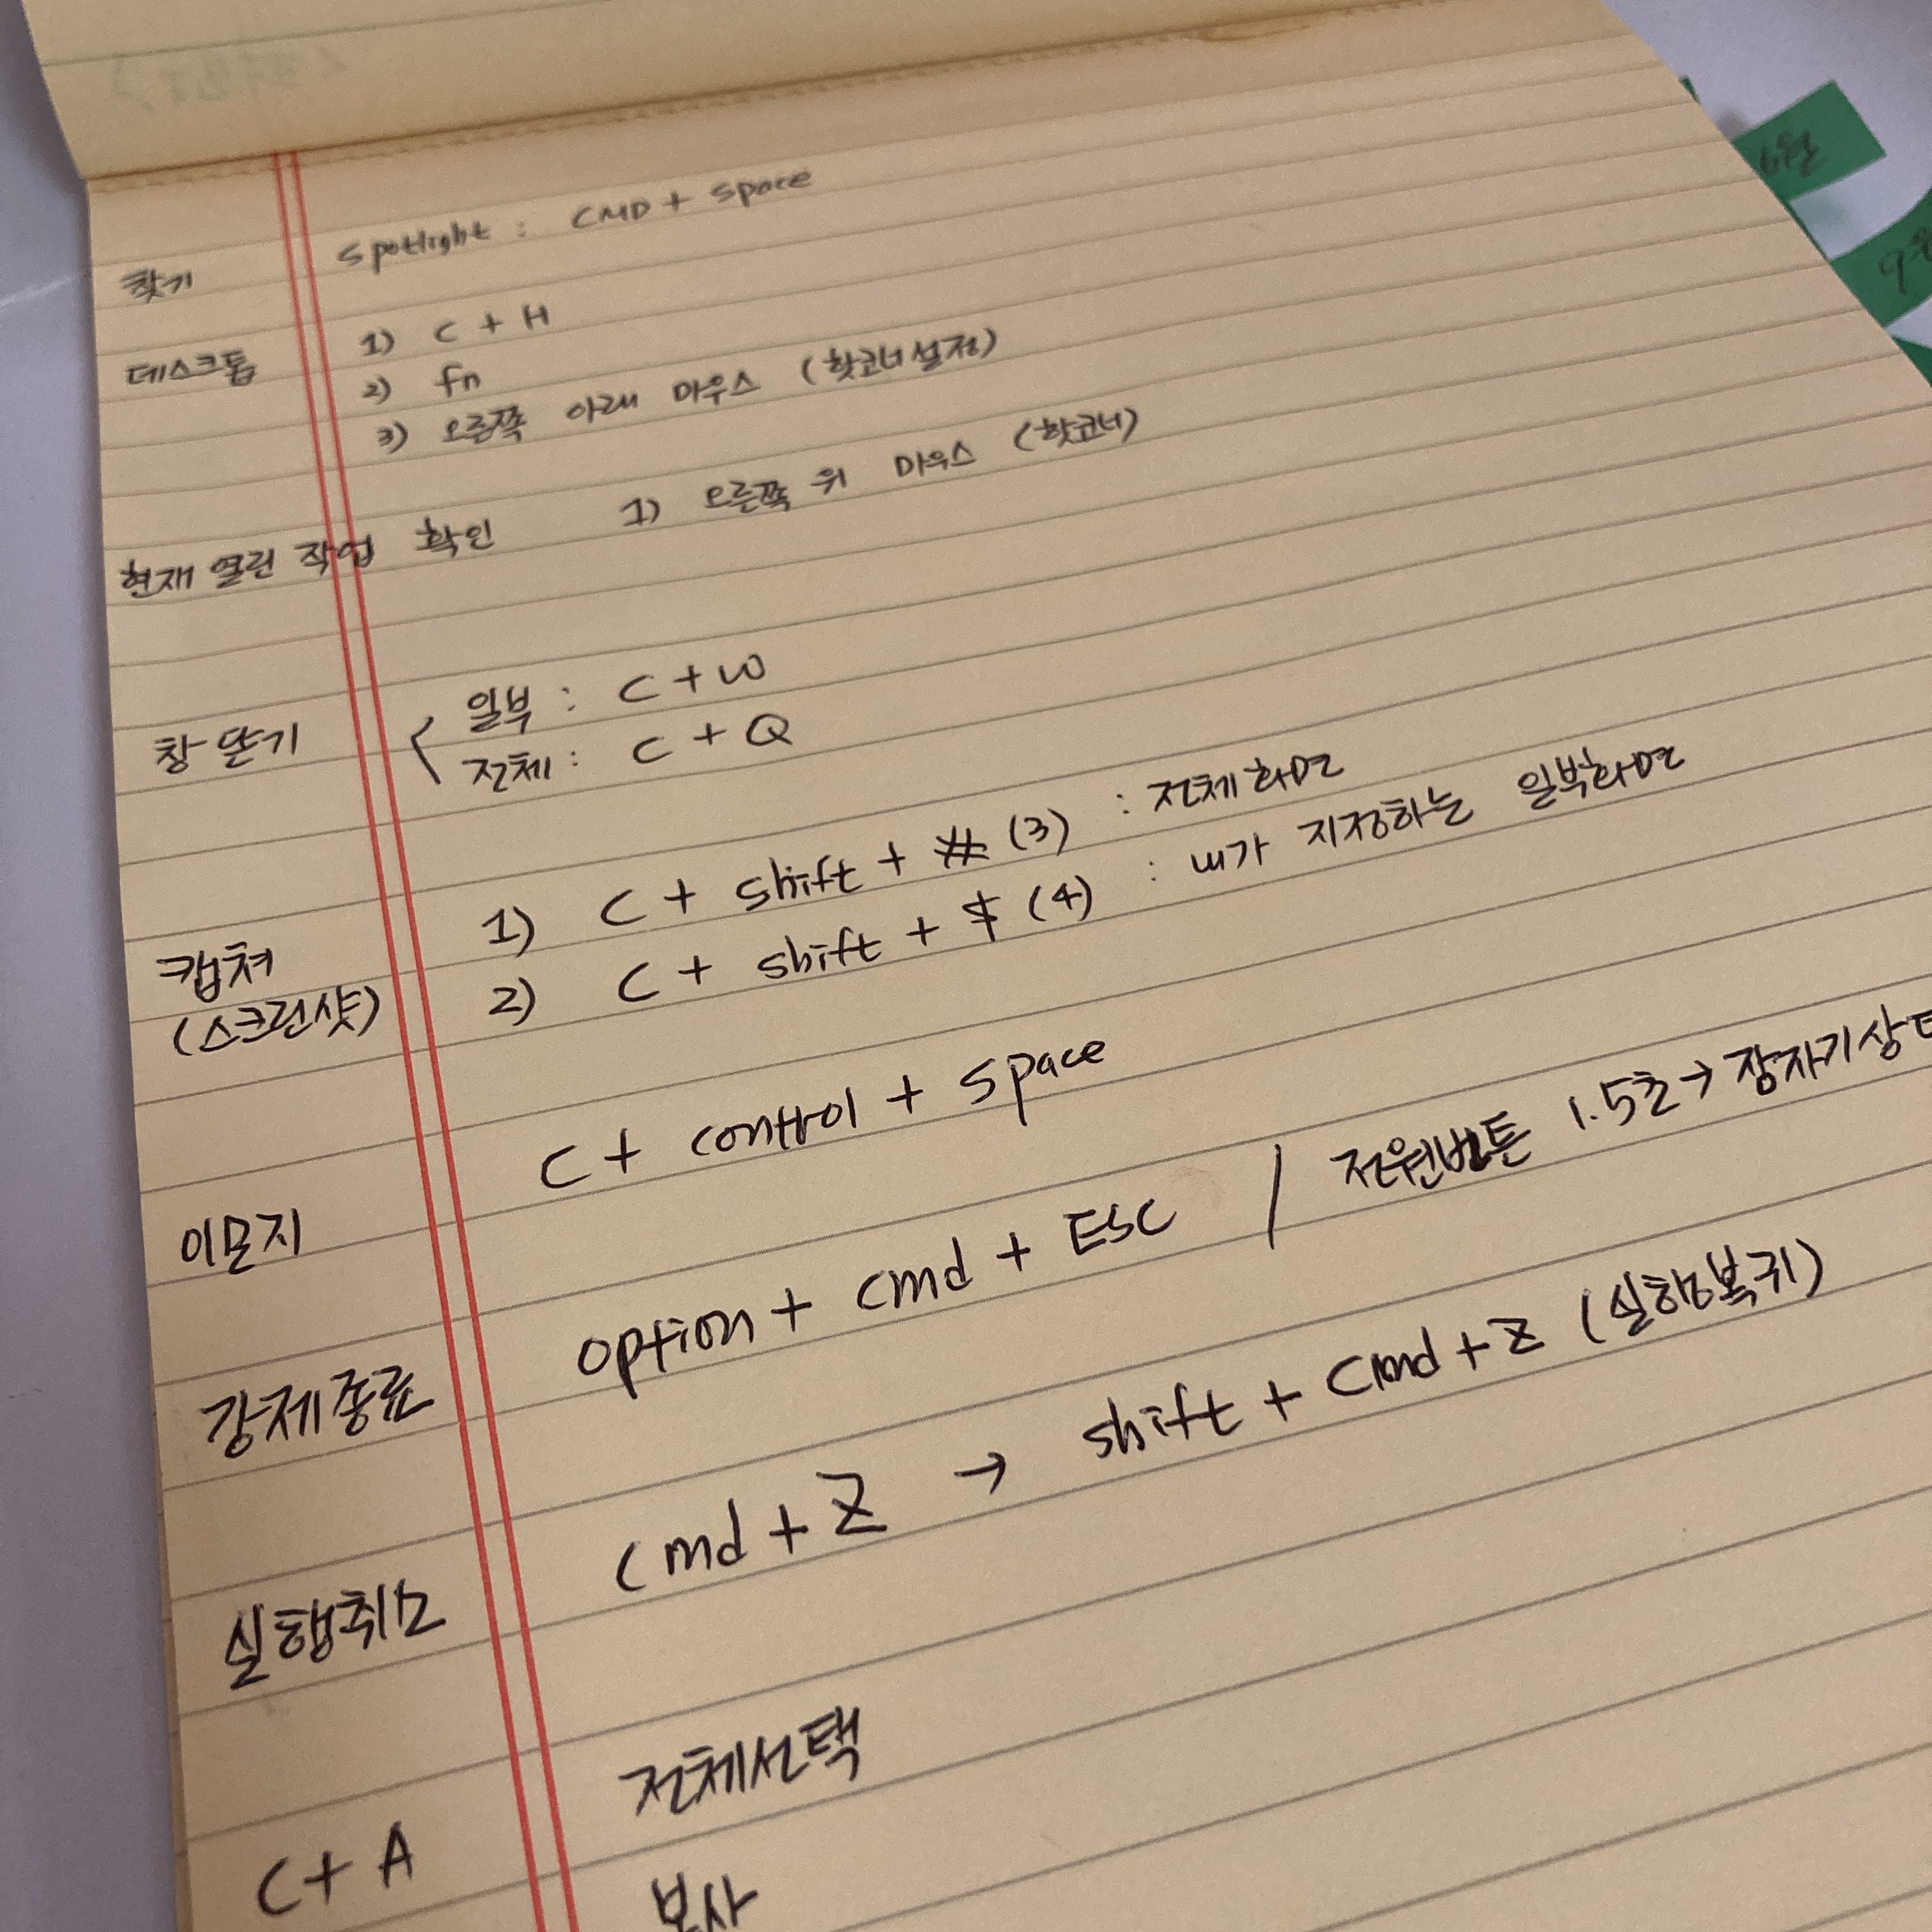 찾기 spotlight : CMD + space
데스크톱 1) C + H
2) fn
3) 오른쪽 아래 마우스 (핫코너설정)
현재 열린 작업 확인 1) 오른쪽 위 마우스 (핫코너)
창 닫기 < 일부 : C + W
전체 : C + Q
캡쳐 1) C + shift + # (3) : 전체화면
(스크린샷) 2) C + shift + $ (4) : 내가 지정하는 일부화면
이모지 C + control + space
강제종료 option + cmd + ESC / 전원버튼 1.5초 → 잠자기상
실행취소 cmd + Z → shift + cmd + Z (실행복귀)
C + A 전체선택
복사
6월
9월